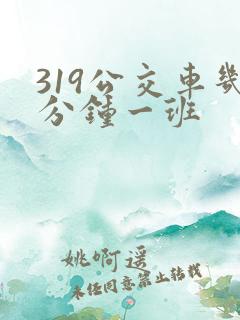 319公交車幾
分鐘一班
姚啊遥
未任同意禁止转载